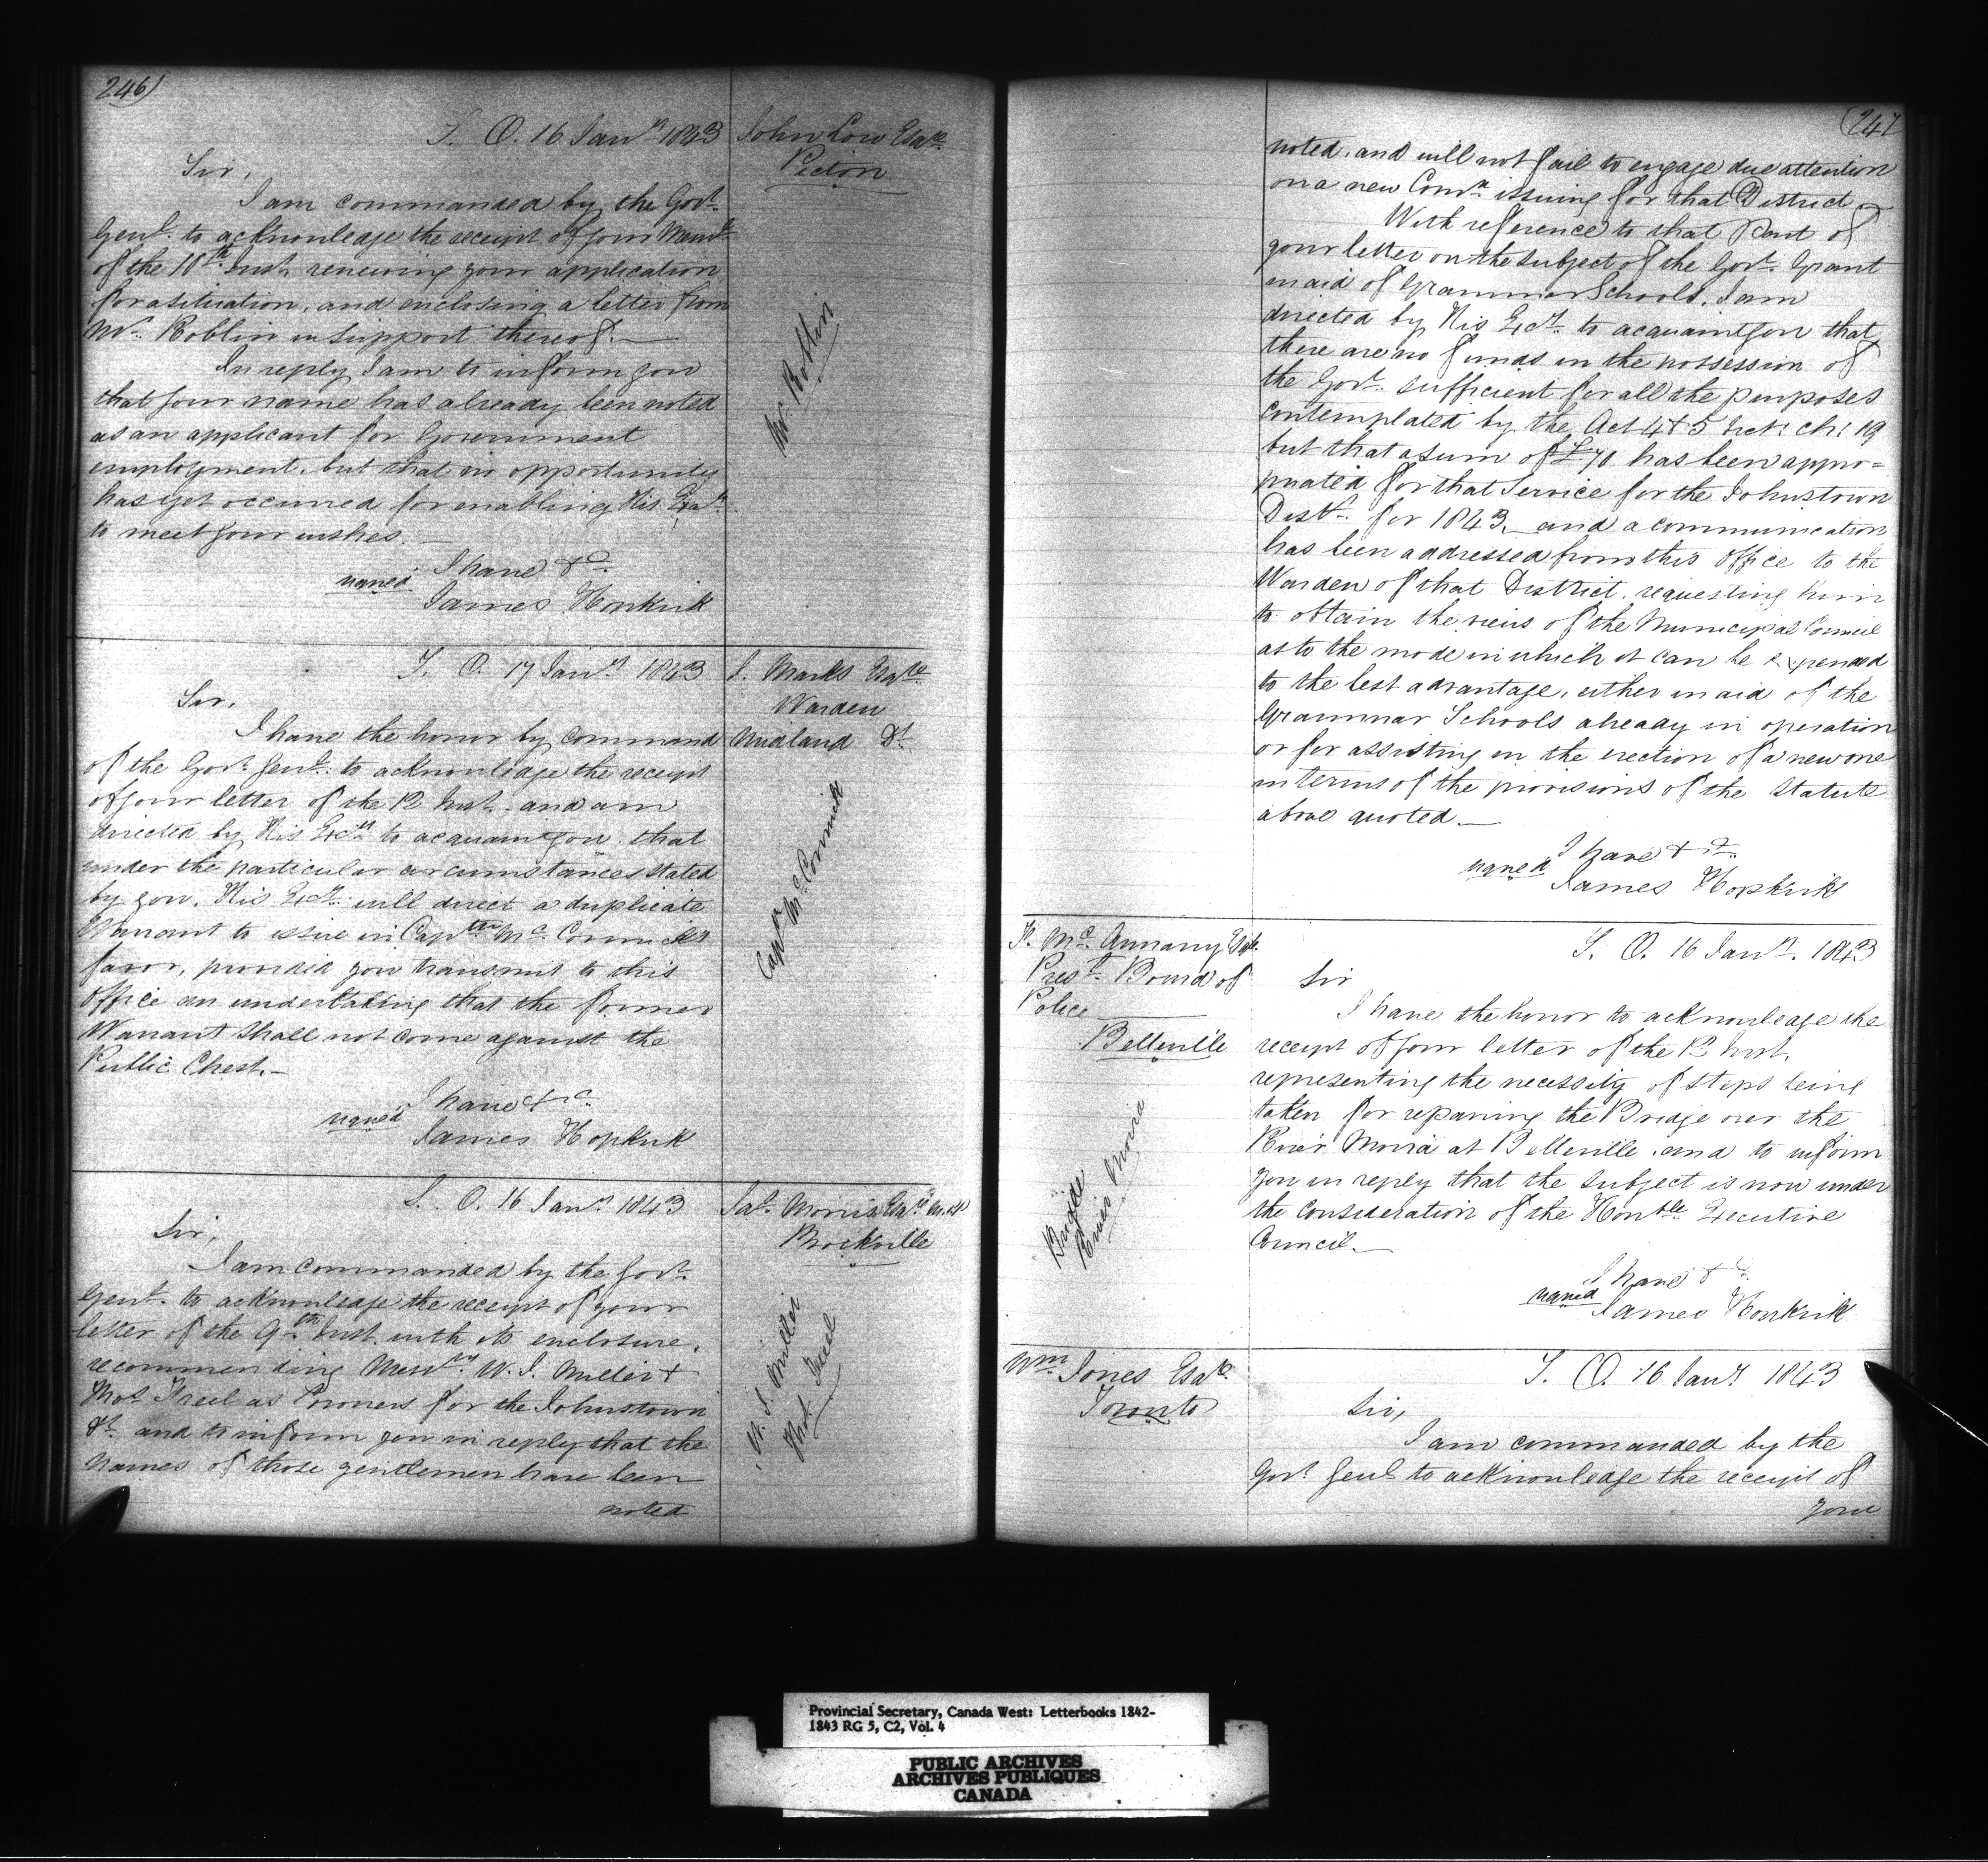 246)
S. O. 16 Jany. 1843
John Low Esqre.
Picton
Sir,
I am commanded by the Govr.
Genl. to acknowledge the receipt of your Meml.
of the 10th. Inst. renewing your application
for a situation, and enclosing a letter from
Mr. Roblin in support thereof.—
Mr. Roblin
In reply I am to inform you
that your name has already been noted
as an applicant for Government
employment, but that no opportunity
has yet occurred for enabling His Exy.
to meet your wishes.—
I have &c.
signed
James Hopkirk
S. O. 17 Jany. 1843
J. Marks Esqre
Warden
Midland Dt.
Sir,
I have the honor by command
of the Govr. Genl. to acknowledge the receipt
of your letter of the 12 Inst. and am
directed by His Excy. to acquaint you, that
under the particular circumstances stated
by you, His Excy. will direct a duplicate
Warrant to issue in Captn. McCormick's
favor, provided you transmit to this
Office an undertaking that the former
Warrant shall not come against the
Public Chest.—
Captn McCormick
I have &c.
signed
James Hopkirk
S. O. 16 Jany. 1843
Jas. Morris Esqre M.P.
Brockville
Sir,
I am commanded by the Govr.
Genl. to acknowledge the receipt of your
letter of the 9th. Inst. with its enclosure,
recommending Messrs. W. J. Miller &
Thos. Freel as Coroners for the Johnstown
Dt. and to inform you in reply that the
names of those gentlemen have been
noted
W. J. Miller
Thos. Freel
(247
noted, and will not fail to engage due attention
on a new Comn. issuing for that District.—
With reference to that Part of
your letter on the subject of the Govt. Grant
in aid of Grammar Schools, I am
directed by His Excy. to acquaint you that
there are no funds in the possession of
the Govt. sufficient for all the purposes
contemplated by the Act 4 & 5 Vict: Ch: 19
but that a sum of £70 has been appro=
priated for that Service for the Johnstown
Distt. for 1843,— and a communication
has been addressed from this Office to the
Warden of that District, requesting him
to obtain the views of the Municipal Council
as to the mode in which it can be expended
to the best advantage, either in aid of the
Grammar Schools already in operation
or for assisting in the erection of a new one
in terms of the provisions of the Statute
above quoted.—
I have &c.
signed
James Hopkirk
McAnnany Esqr.
Prest. Board of
Police
Belleville
S. O. 16 Jany. 1843
Sir
I have the honor to acknowledge the
receipt of your letter of the 12 Inst.
representing the necessity of steps being
taken for repairing the Bridge over the
River Moira at Belleville, and to inform
you in reply that the subject is now under
the consideration of the Honble. Executive
Council.—
Bridge
River Moira
I have &c.
signed
James Hopkirk
Wm. Jones Esqre.
Toronto
S. O. 16 Jany. 1843
Sir,
I am commanded by the
Govr. Genl. to acknowledge the receipt of
your
Provincial Secretary, Canada West: Letterbooks 1842-
1843 RG 5, C2, Vol. 4
PUBLIC ARCHIVES
ARCHIVES PUBLIQUES
CANADA